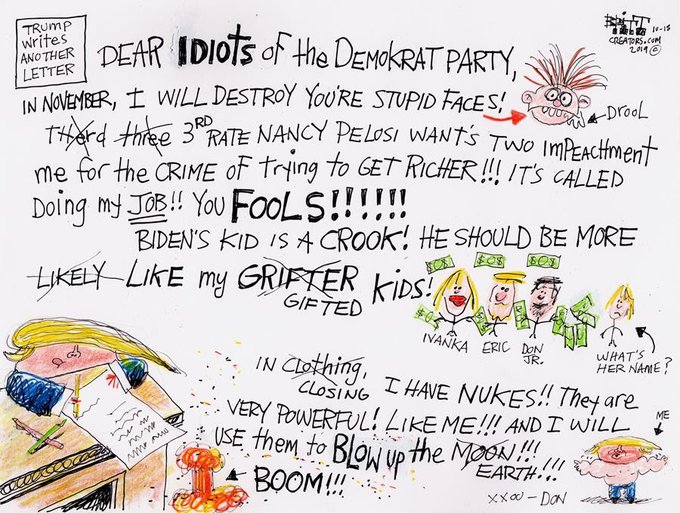 TRUMP
WRITES
ANOTHER
LETTER
BRITT
10-18
CREATORS.COM
2019 ©
DEAR IDIOTS OF the DEMOKRAT PARTY,
IN NOVEMBER, I WILL DESTROY YOU'RE STUPID FACES!
DROOL
THerd three 3RD RATE NANCY PELOSI WANT'S TWO IMPEACHment
me for the CRIME OF TryING to GET RICHER!!! IT'S CALLED
DOING my JOB!! YOU FOOLS!!!!!!
BIDEN'S KID IS A CROOK! HE SHOULD BE MORE
LIKELY LIKE my GRIFTER KIDS!
GIFTED
$0$ $0$ $0$
IVANKA ERIC DON
JR.
WHAT'S
HER NAME?
IN CLOthING,
CLOSING I HAVE NUKES!! They are
VERY POWERFUL! LIKE ME!!! AND I WILL
USE them to BLOW UP the MOON!!!
EARTH!!!
BOOM!!!
ME
XXOO - DON